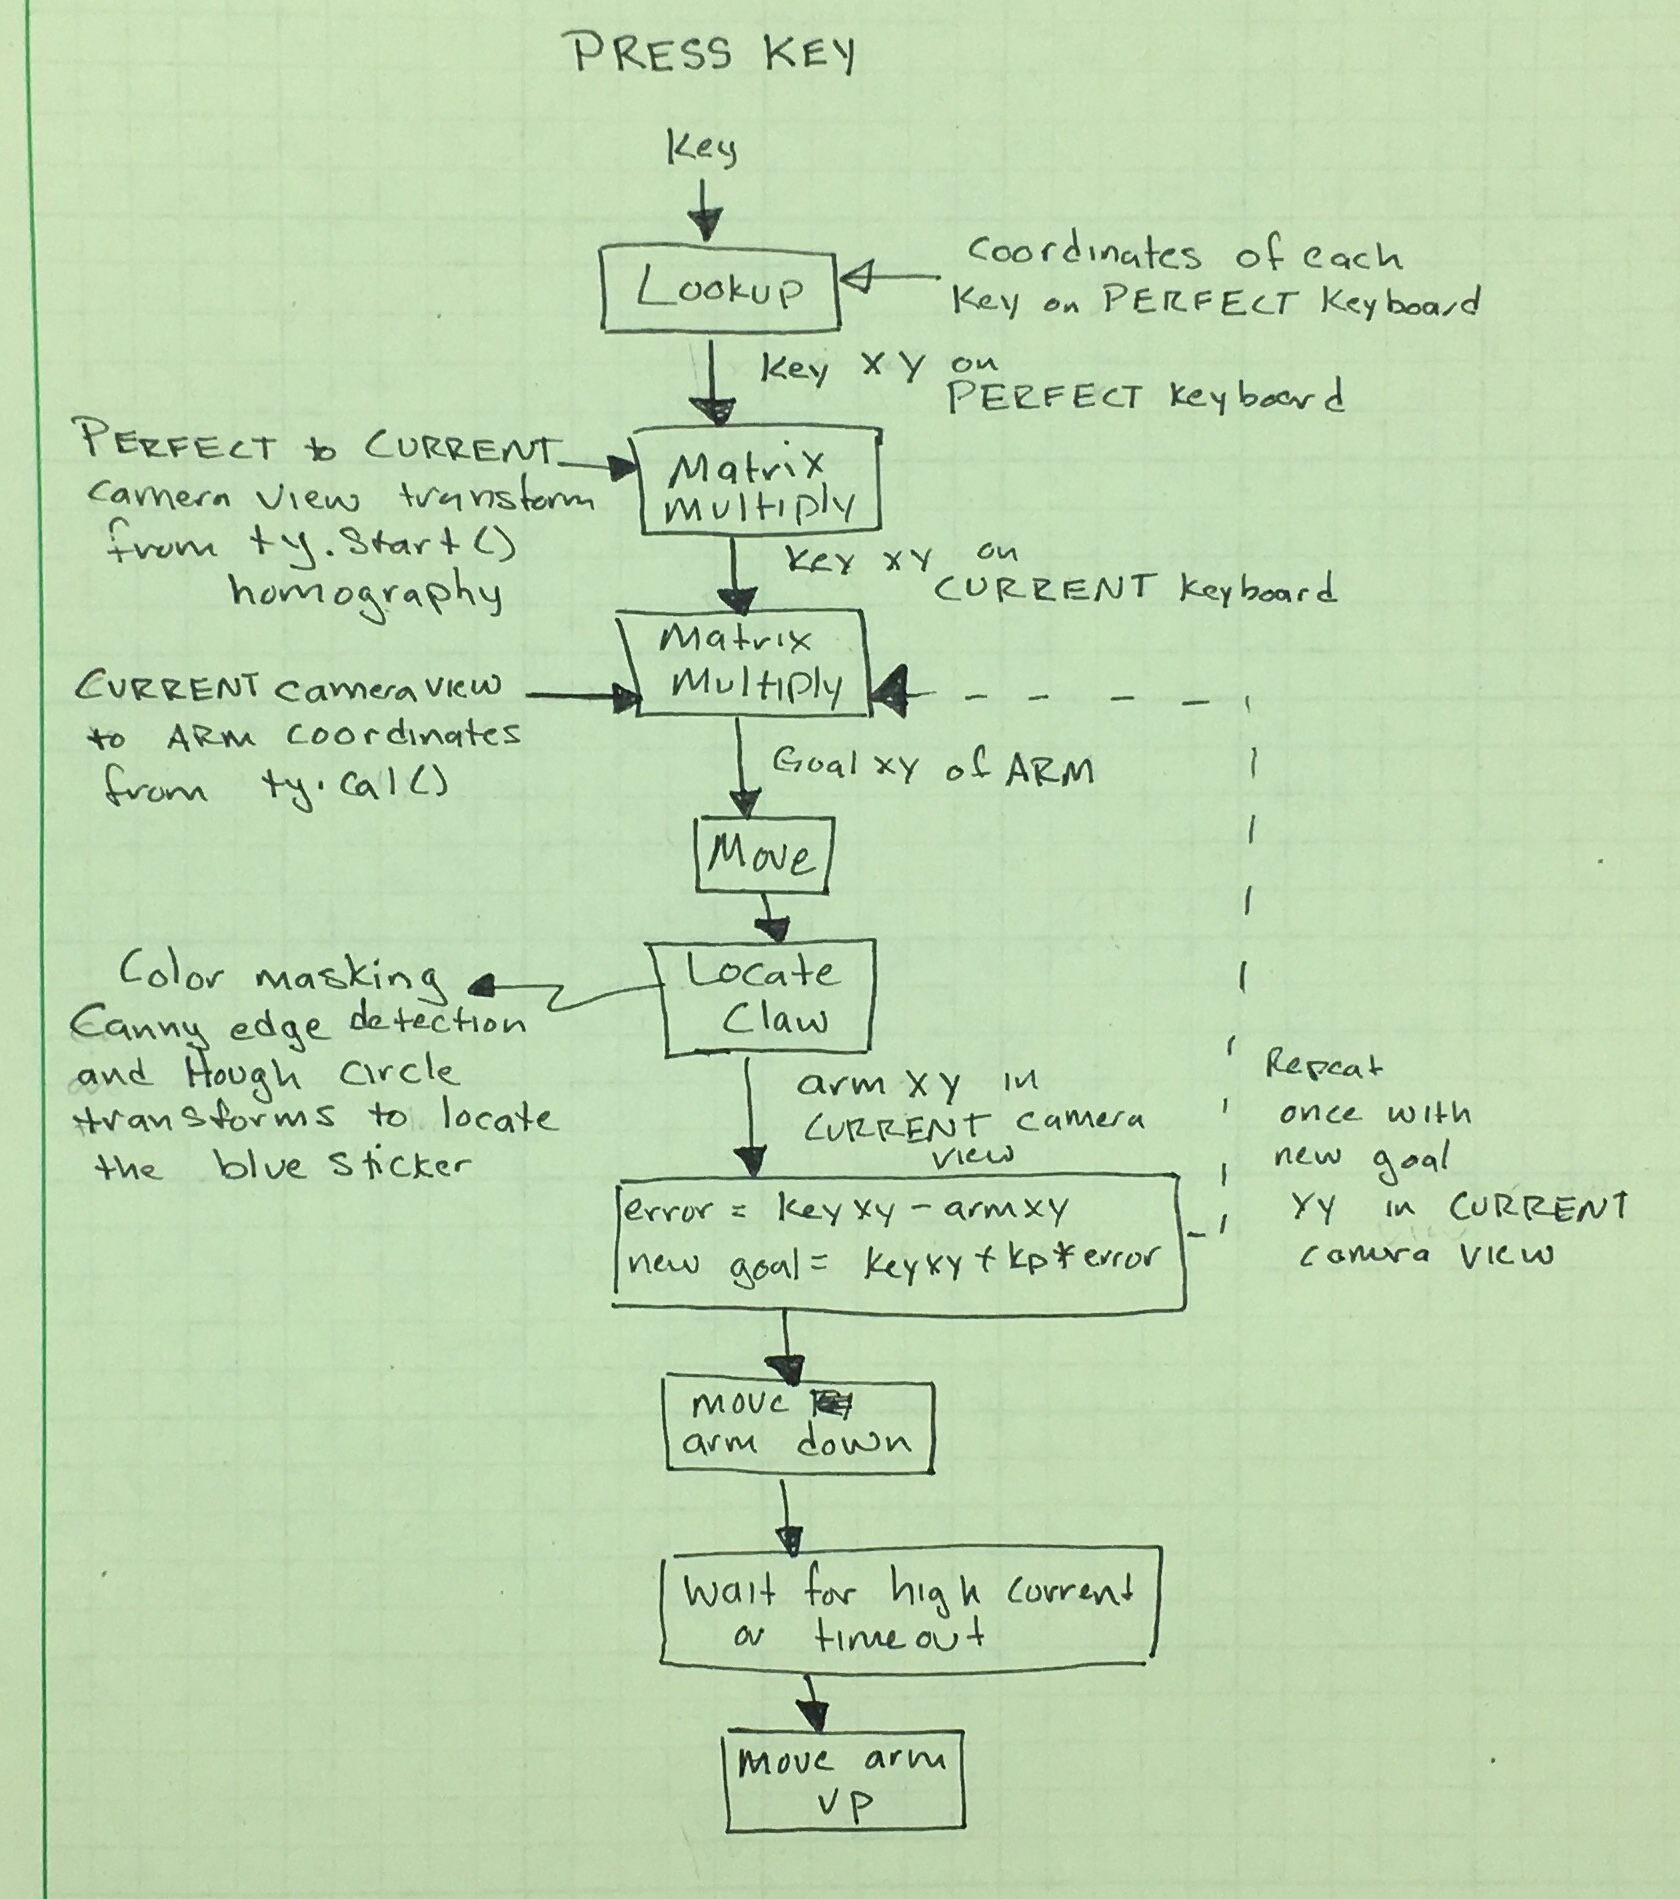 PRESS KEY
Key
Lookup
Coordinates of each
Key on PERFECT Keyboard
Key XY on
PERFECT Keyboard
PERFECT to CURRENT
camera view transform
from ty.start()
homography
Matrix
Multiply
Key XY on
CURRENT Keyboard
Matrix
Multiply
CURRENT camera view
to ARM coordinates
from ty.cal()
Goal xy of ARM
Move
Locate
Claw
Color masking
Canny edge detection
and Hough Circle
transforms to locate
the blue sticker
arm XY in
CURRENT camera
view
Repeat
once with
new goal
XY in CURRENT
camera view
error = Key xy - arm xy
new goal = Key xy + kp * error
move
arm down
Wait for high current
or timeout
move arm
up